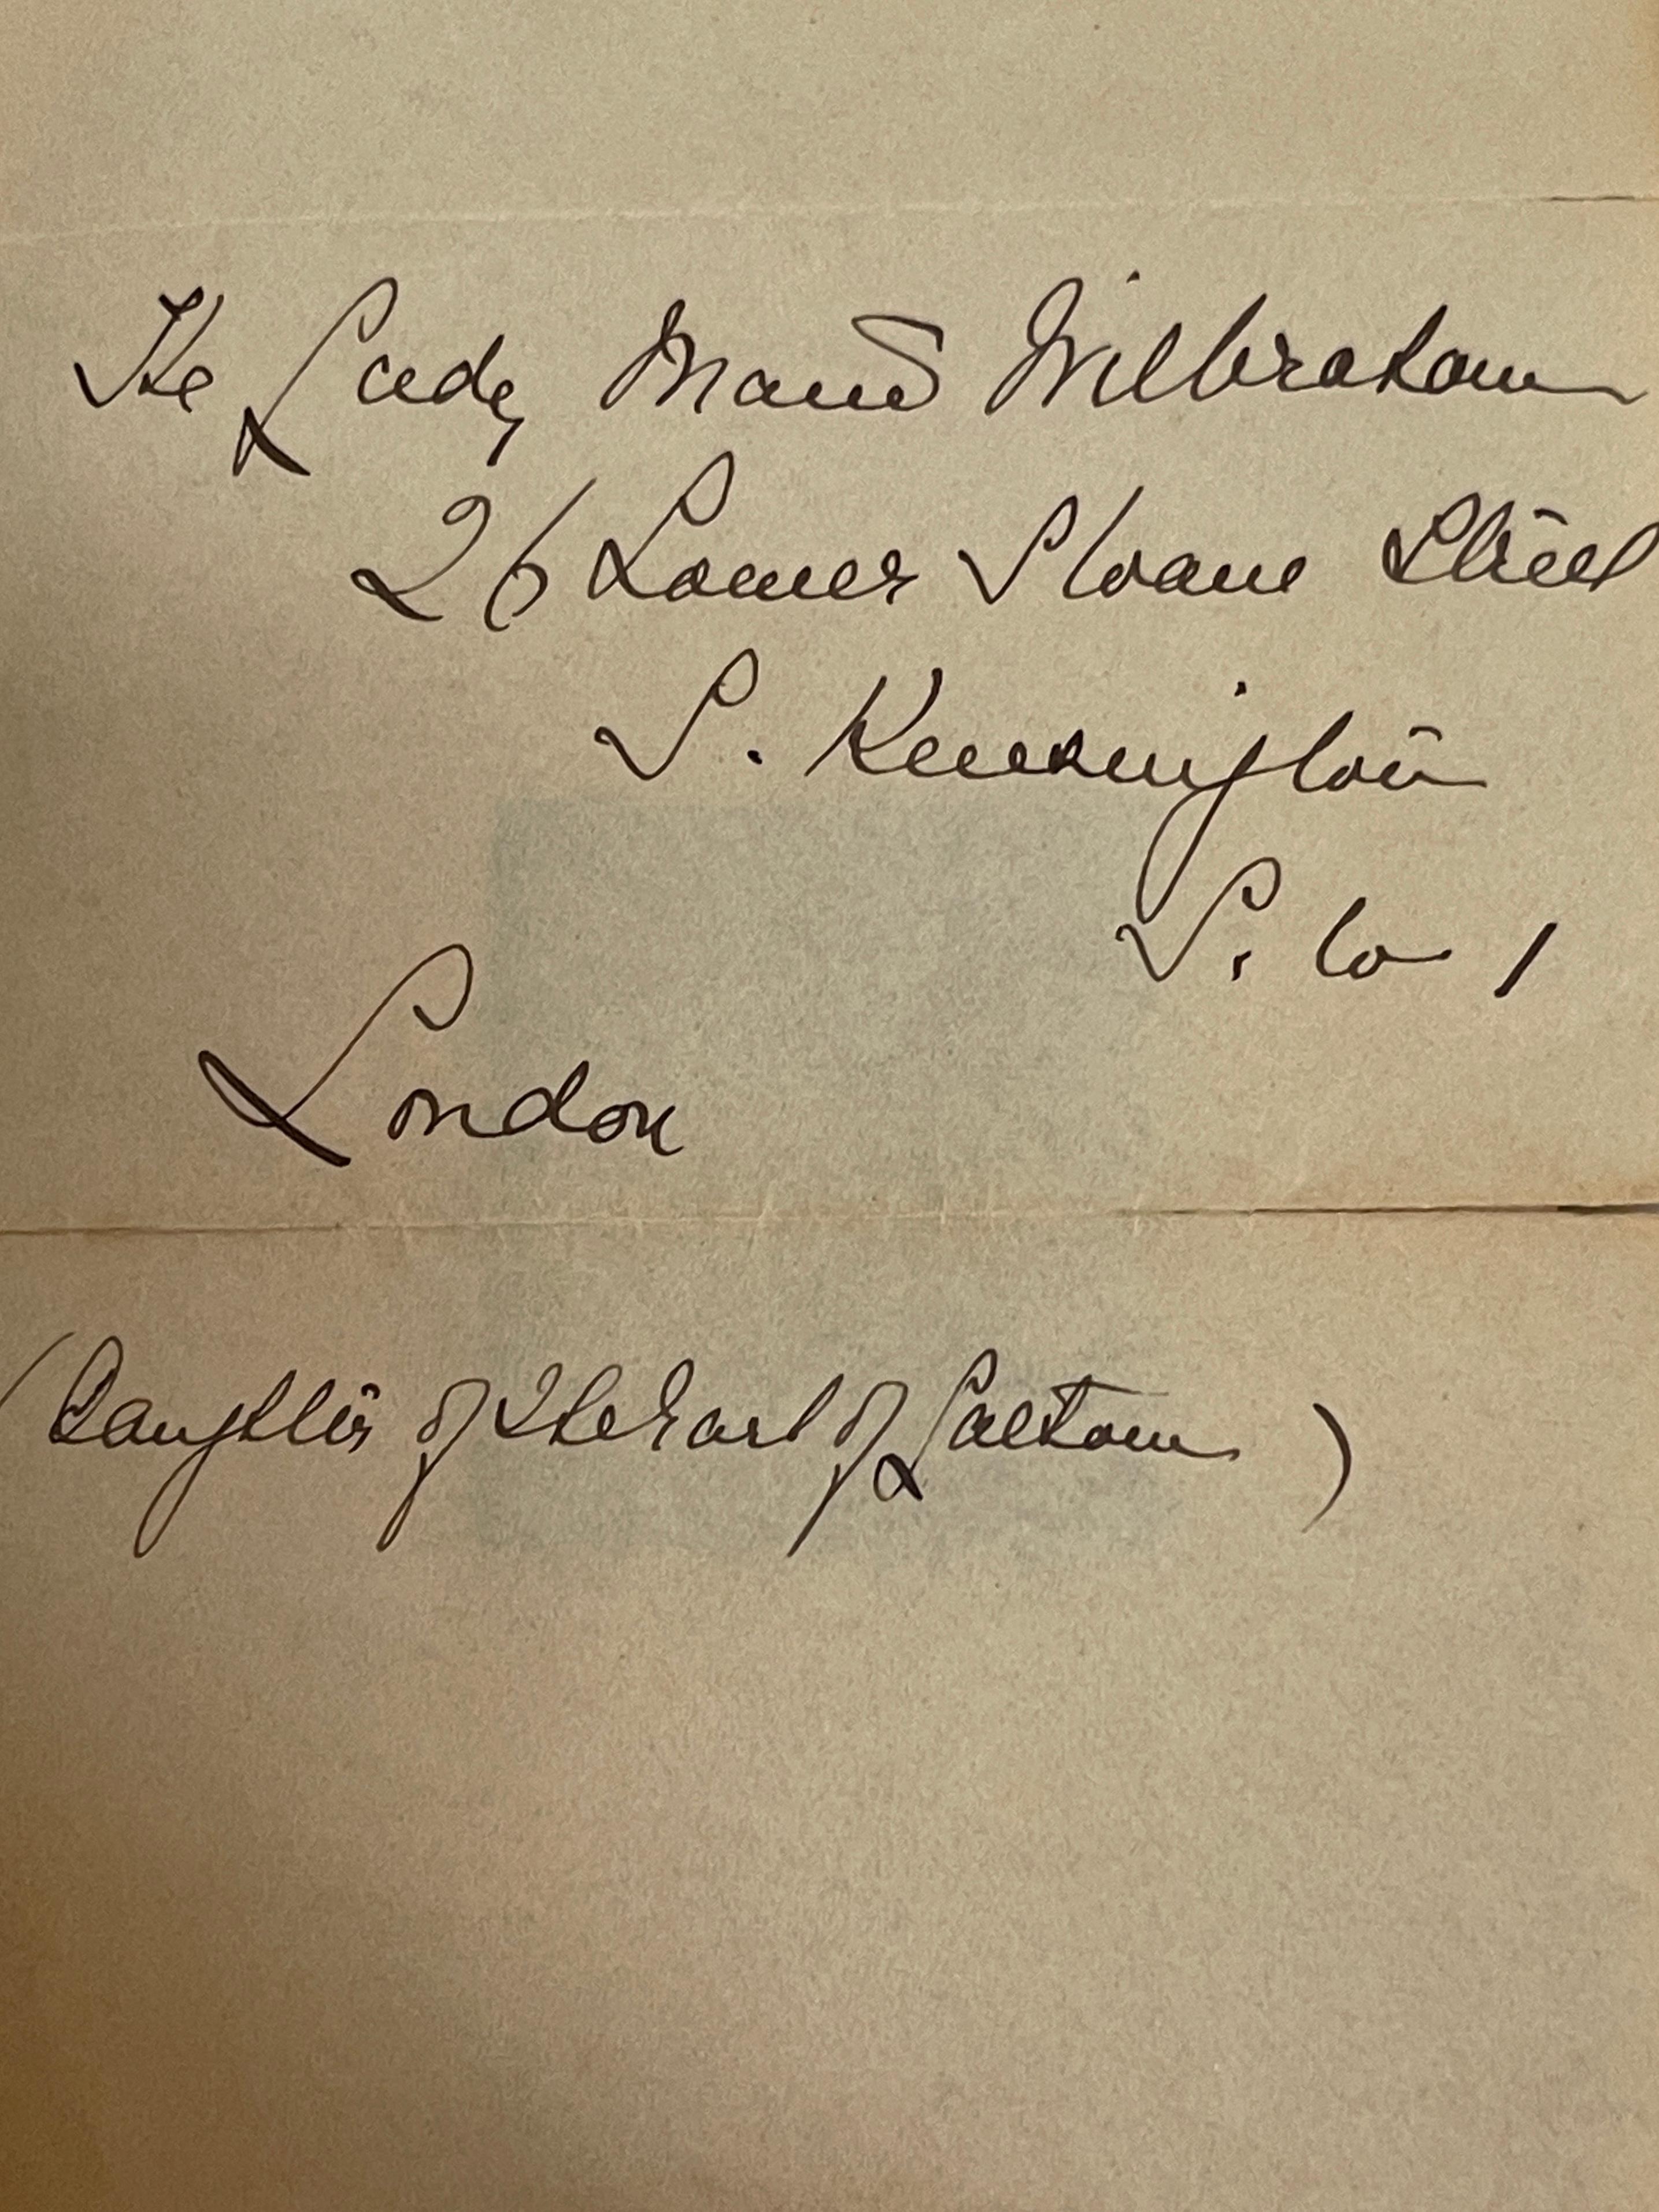 The Lady Maud Wilbraham
26 Lower Sloane Street
S. Kensington
S. W 1
London
(Daughter of the Earl of Lathom)